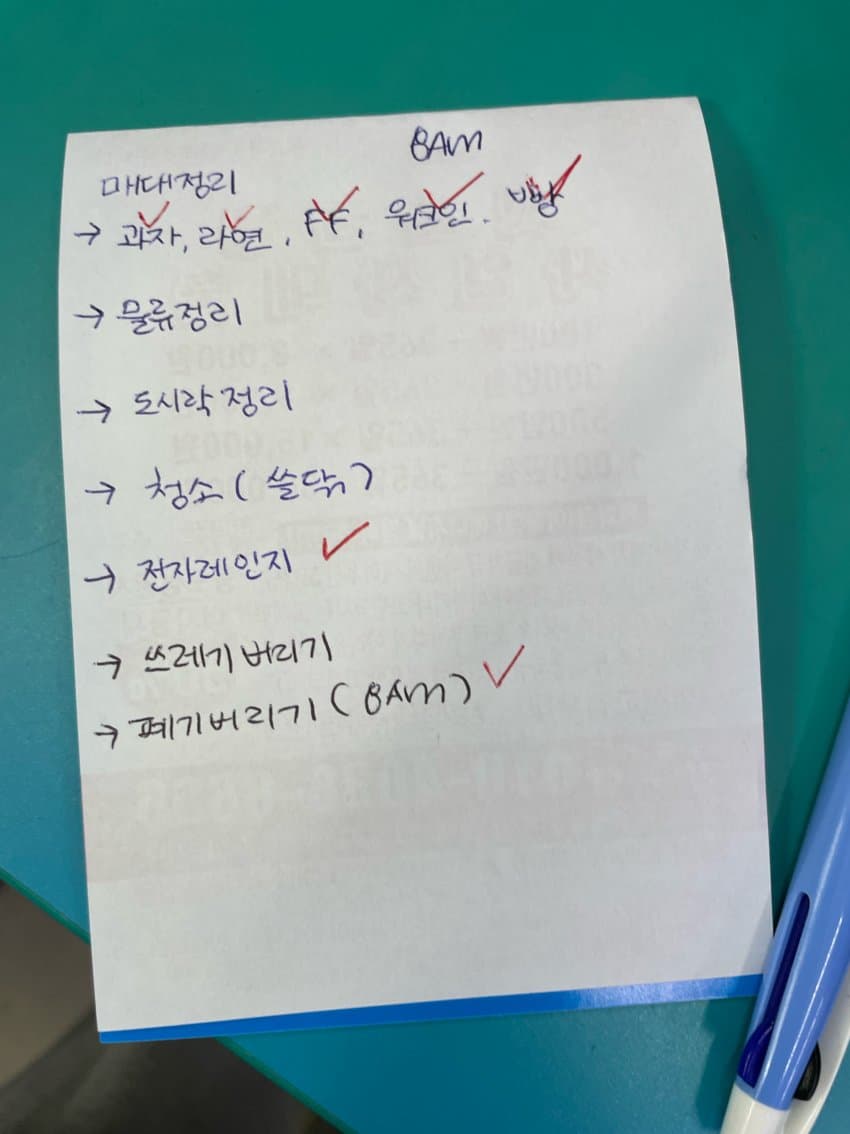 8AM
매대정리
→ 과자, 라면, FF, 워크인, 빵
→ 물류정리
→ 도시락정리
→ 청소 (쓸닦)
→ 전자레인지
→ 쓰레기버리기
→ 폐기버리기 (8AM)